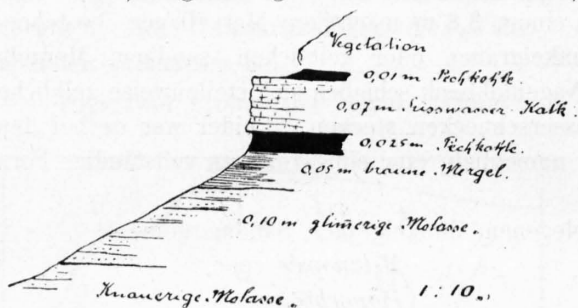 Vegetation
0,01 m Pechkohle
0,07 m Süsswasser-Kalk.
0,025 m Pechkohle
0,05 m braune Mergel.
0,10 m glimerige Molasse.
Knauerige Molasse. 1:10.